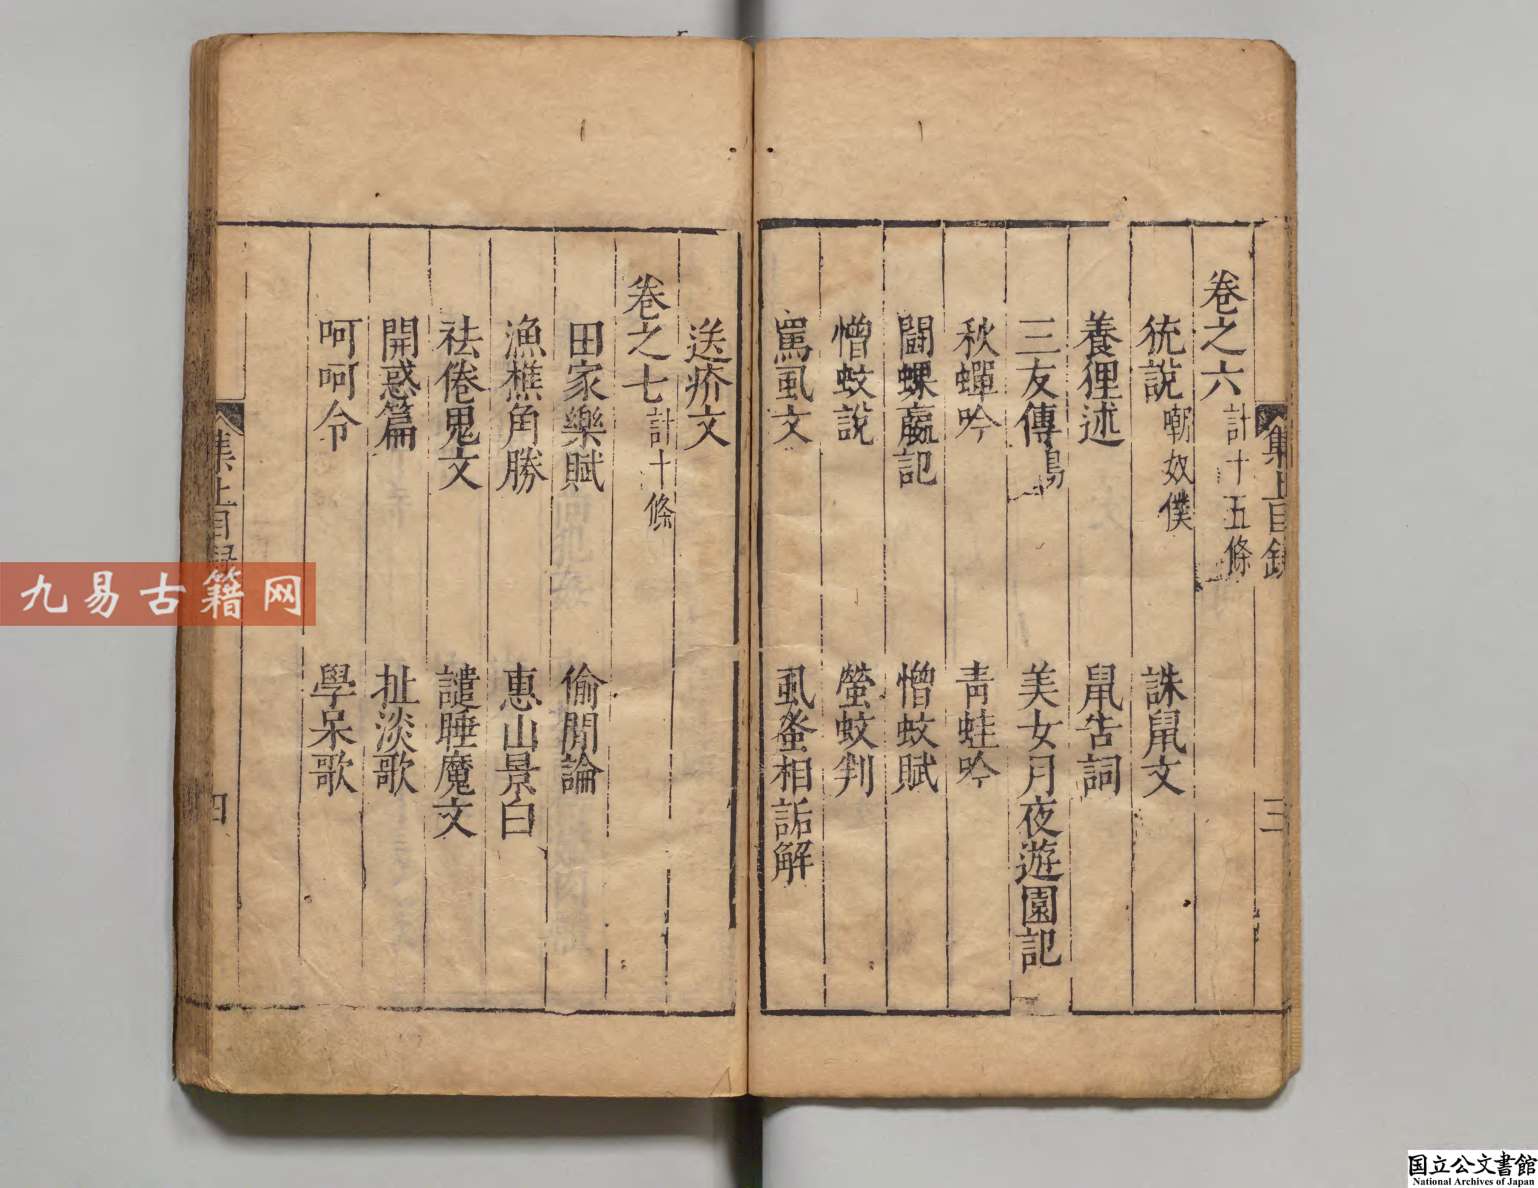 卷之六 計十五條
統說 嘲奴僕
誅鼠文
養狸述
鼠告詞
三友傳 鳥
美女月夜遊園記
秋蟬吟
青蛙吟
鬪螺蠃記
憎蚊賦
憎蚊說
螢蚊判
罵虱文
虱蚤相詬解
集上目錄
三
送疥文
卷之七 計十條
田家樂賦
偷閒論
漁樵角勝
惠山景白
祛倦鬼文
譴睡魔文
開惑篇
扯淡歌
呵呵令
學呆歌
集上目錄
四
九易古籍网
国立公文書館
National Archives of Japan